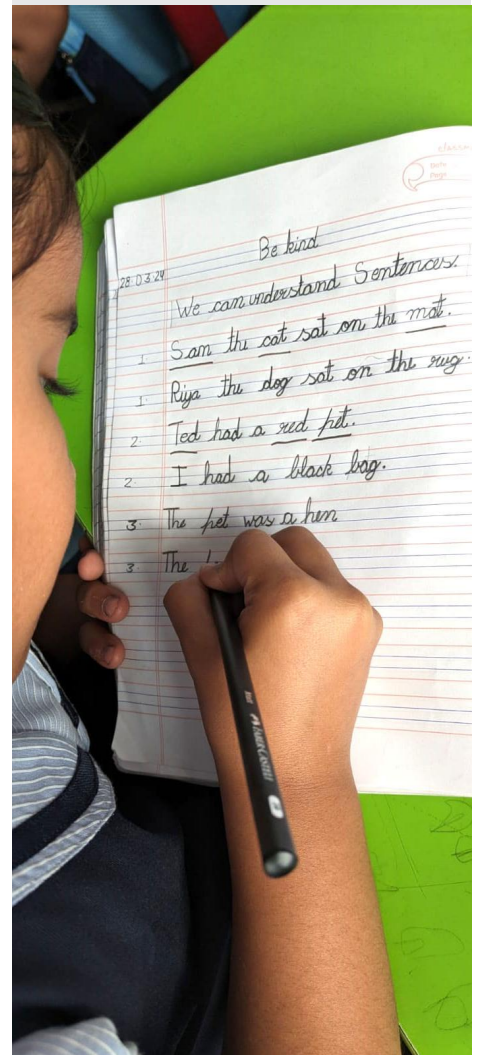 classm
Date
Page
Be kind
28.03.24
We can understand Sentences.
1. Sam the cat sat on the mat.
1. Riya the dog sat on the rug.
2. Ted had a red pet.
2. I had a black bag.
3. The pet was a hen
3. The
FABER-CASTELL